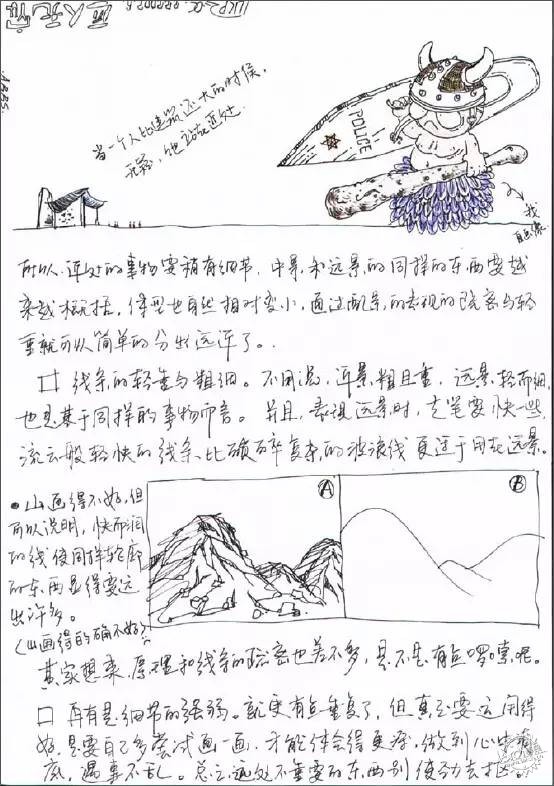 当一个人比建筑还大的时候。
无疑,他站在近处
POLICE
我
自画像
所以,近处的事物要稍有细节,中景和远景的同样的东西要越
来越概括,体型也自然相对变小,通过配景的表现的疏密与轻
重就可以简单的分出远近了。
口 线条的轻重与粗细。不用说,近景粗且重,远景轻而细,
也是基于同样的事物而言。并且,表现远景时,走笔要快一些,
流云般轻快的线条比琐碎复杂的波浪线更适于用在远景。
•山画得不好,但
可以说明,快而润
的线使同样轮廓
的东西显得要远
出许多。
(山画得的确不好)
A
B
其实想来,原理和线条的疏密也差不多,是不是有点啰嗦呢。
口 再有是细节的强弱。就更有点重复了,但真正要运用得
好,是要自己多尝试画一画,才能体会得更深,做到心中有
底,遇事不乱。总之远处不重要的东西别使劲去抠。